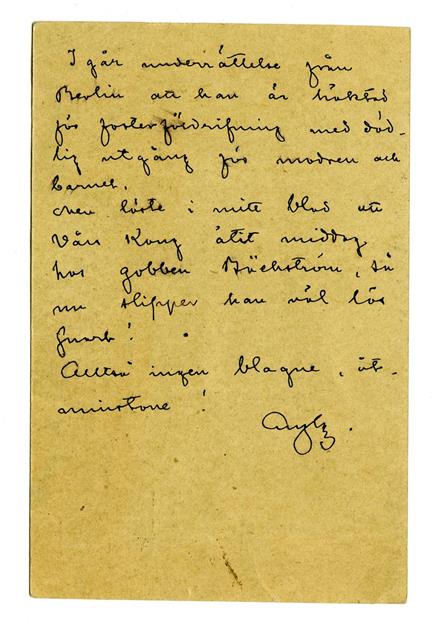 I går underrättelse från
Berlin att han är häktad
för fosterfördrifning med död-
lig utgång för modren och
barnet.
Men läste i mitt blad att
Vår Kung ätit middag
hos gobben Bäckström, så
nu slipper han väl lös
snart!
Alltså ingen blague, åt-
minstone!